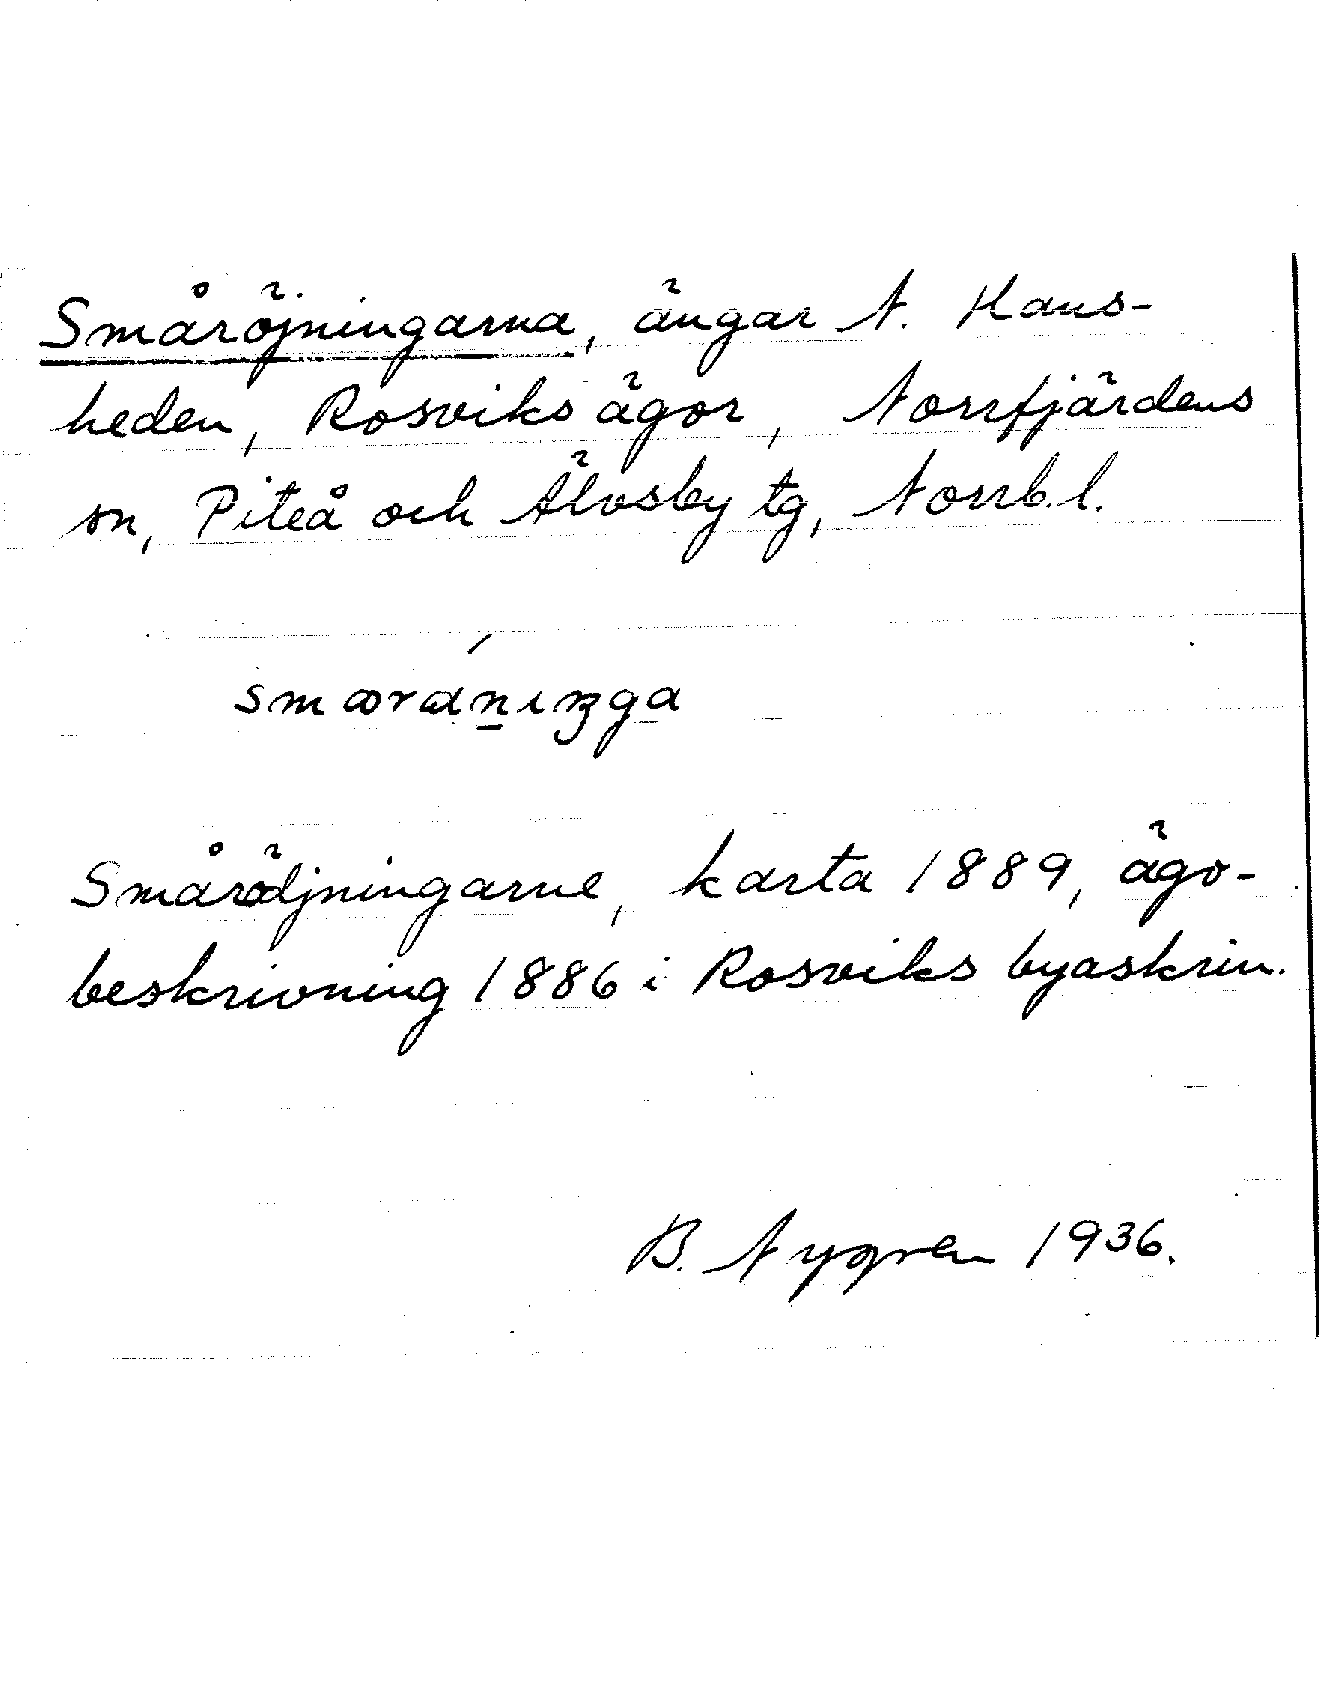 Småröjningarna, ängar N. Haus-
heden, Rosviks ägor, Norrfjärdens
sn, Piteå och Älvsby tg, Norrb. l.
Smårödjningarne, karta 1889, ägo-
beskrivning 1886 i Rosviks byaskrin.
B. Nygren 1936.